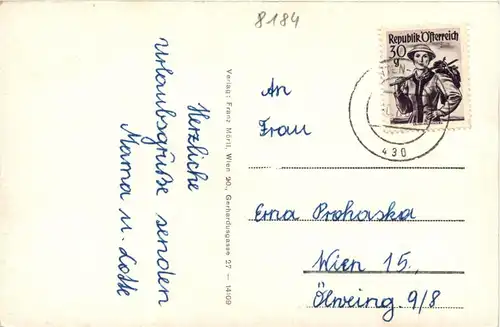 8184
Herzliche
Urlaubsgrüße senden
Mama u. Lotte
Verlag: Franz Mörtl, Wien 20., Gerhardusgasse 27 — 14:09
Republik Österreich
30
g
430
An
Frau
Erna Prohaska
Wien 15.,
Ölweing. 9/8